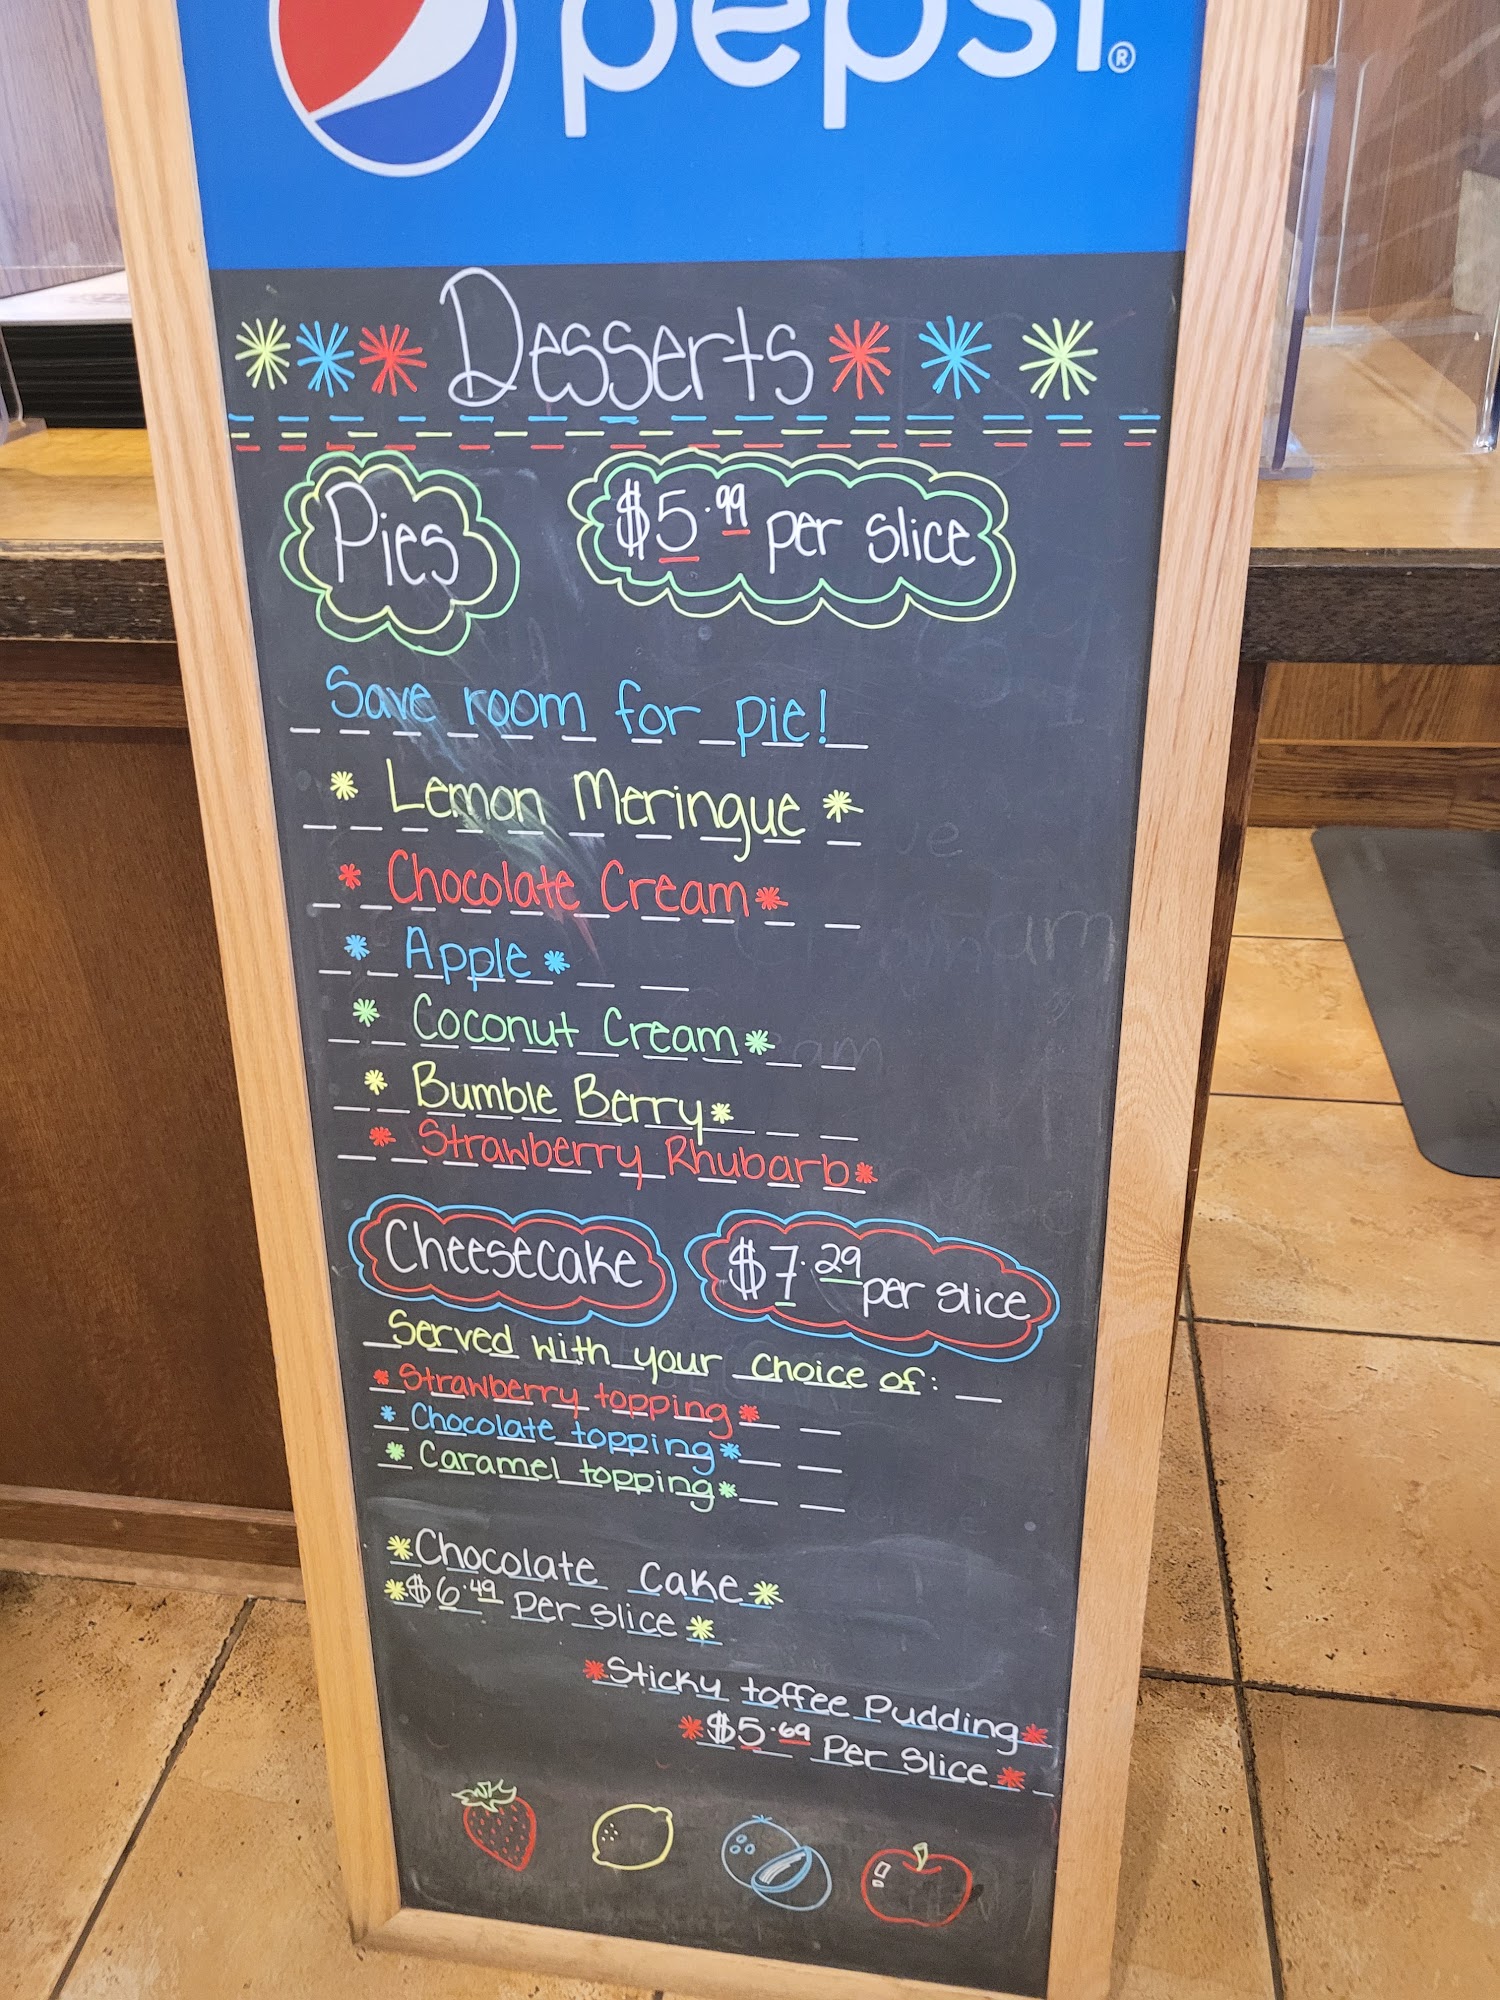 pepsi®
Desserts
Pies $5.99 per slice
Save room for pie!
Lemon Meringue
Chocolate Cream
Apple
Coconut Cream
Bumble Berry
Strawberry Rhubarb
Cheesecake $7.29 per slice
Served with your choice of:
Strawberry topping
Chocolate topping
Caramel topping
Chocolate Cake
$6.49 per slice
Sticky toffee Pudding
$5.69 Per Slice